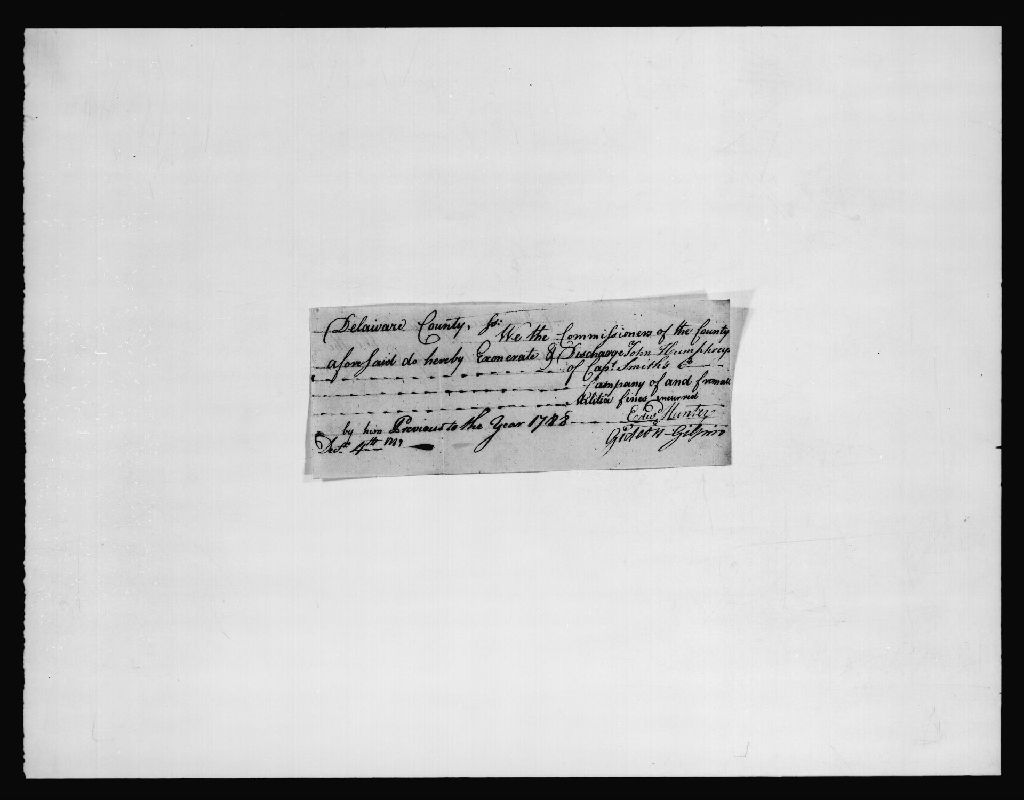 Delaware County, Ss. We the Commissioners of the County
aforesaid do hereby Exonerate & Discharge John Humphreys
of Capt. Smith's
Company of and from all
Militia fines incurred
by him Previous to the Year 1788
Edwd. Hunter
Gideon Gilpin
Decr. 4th 1789